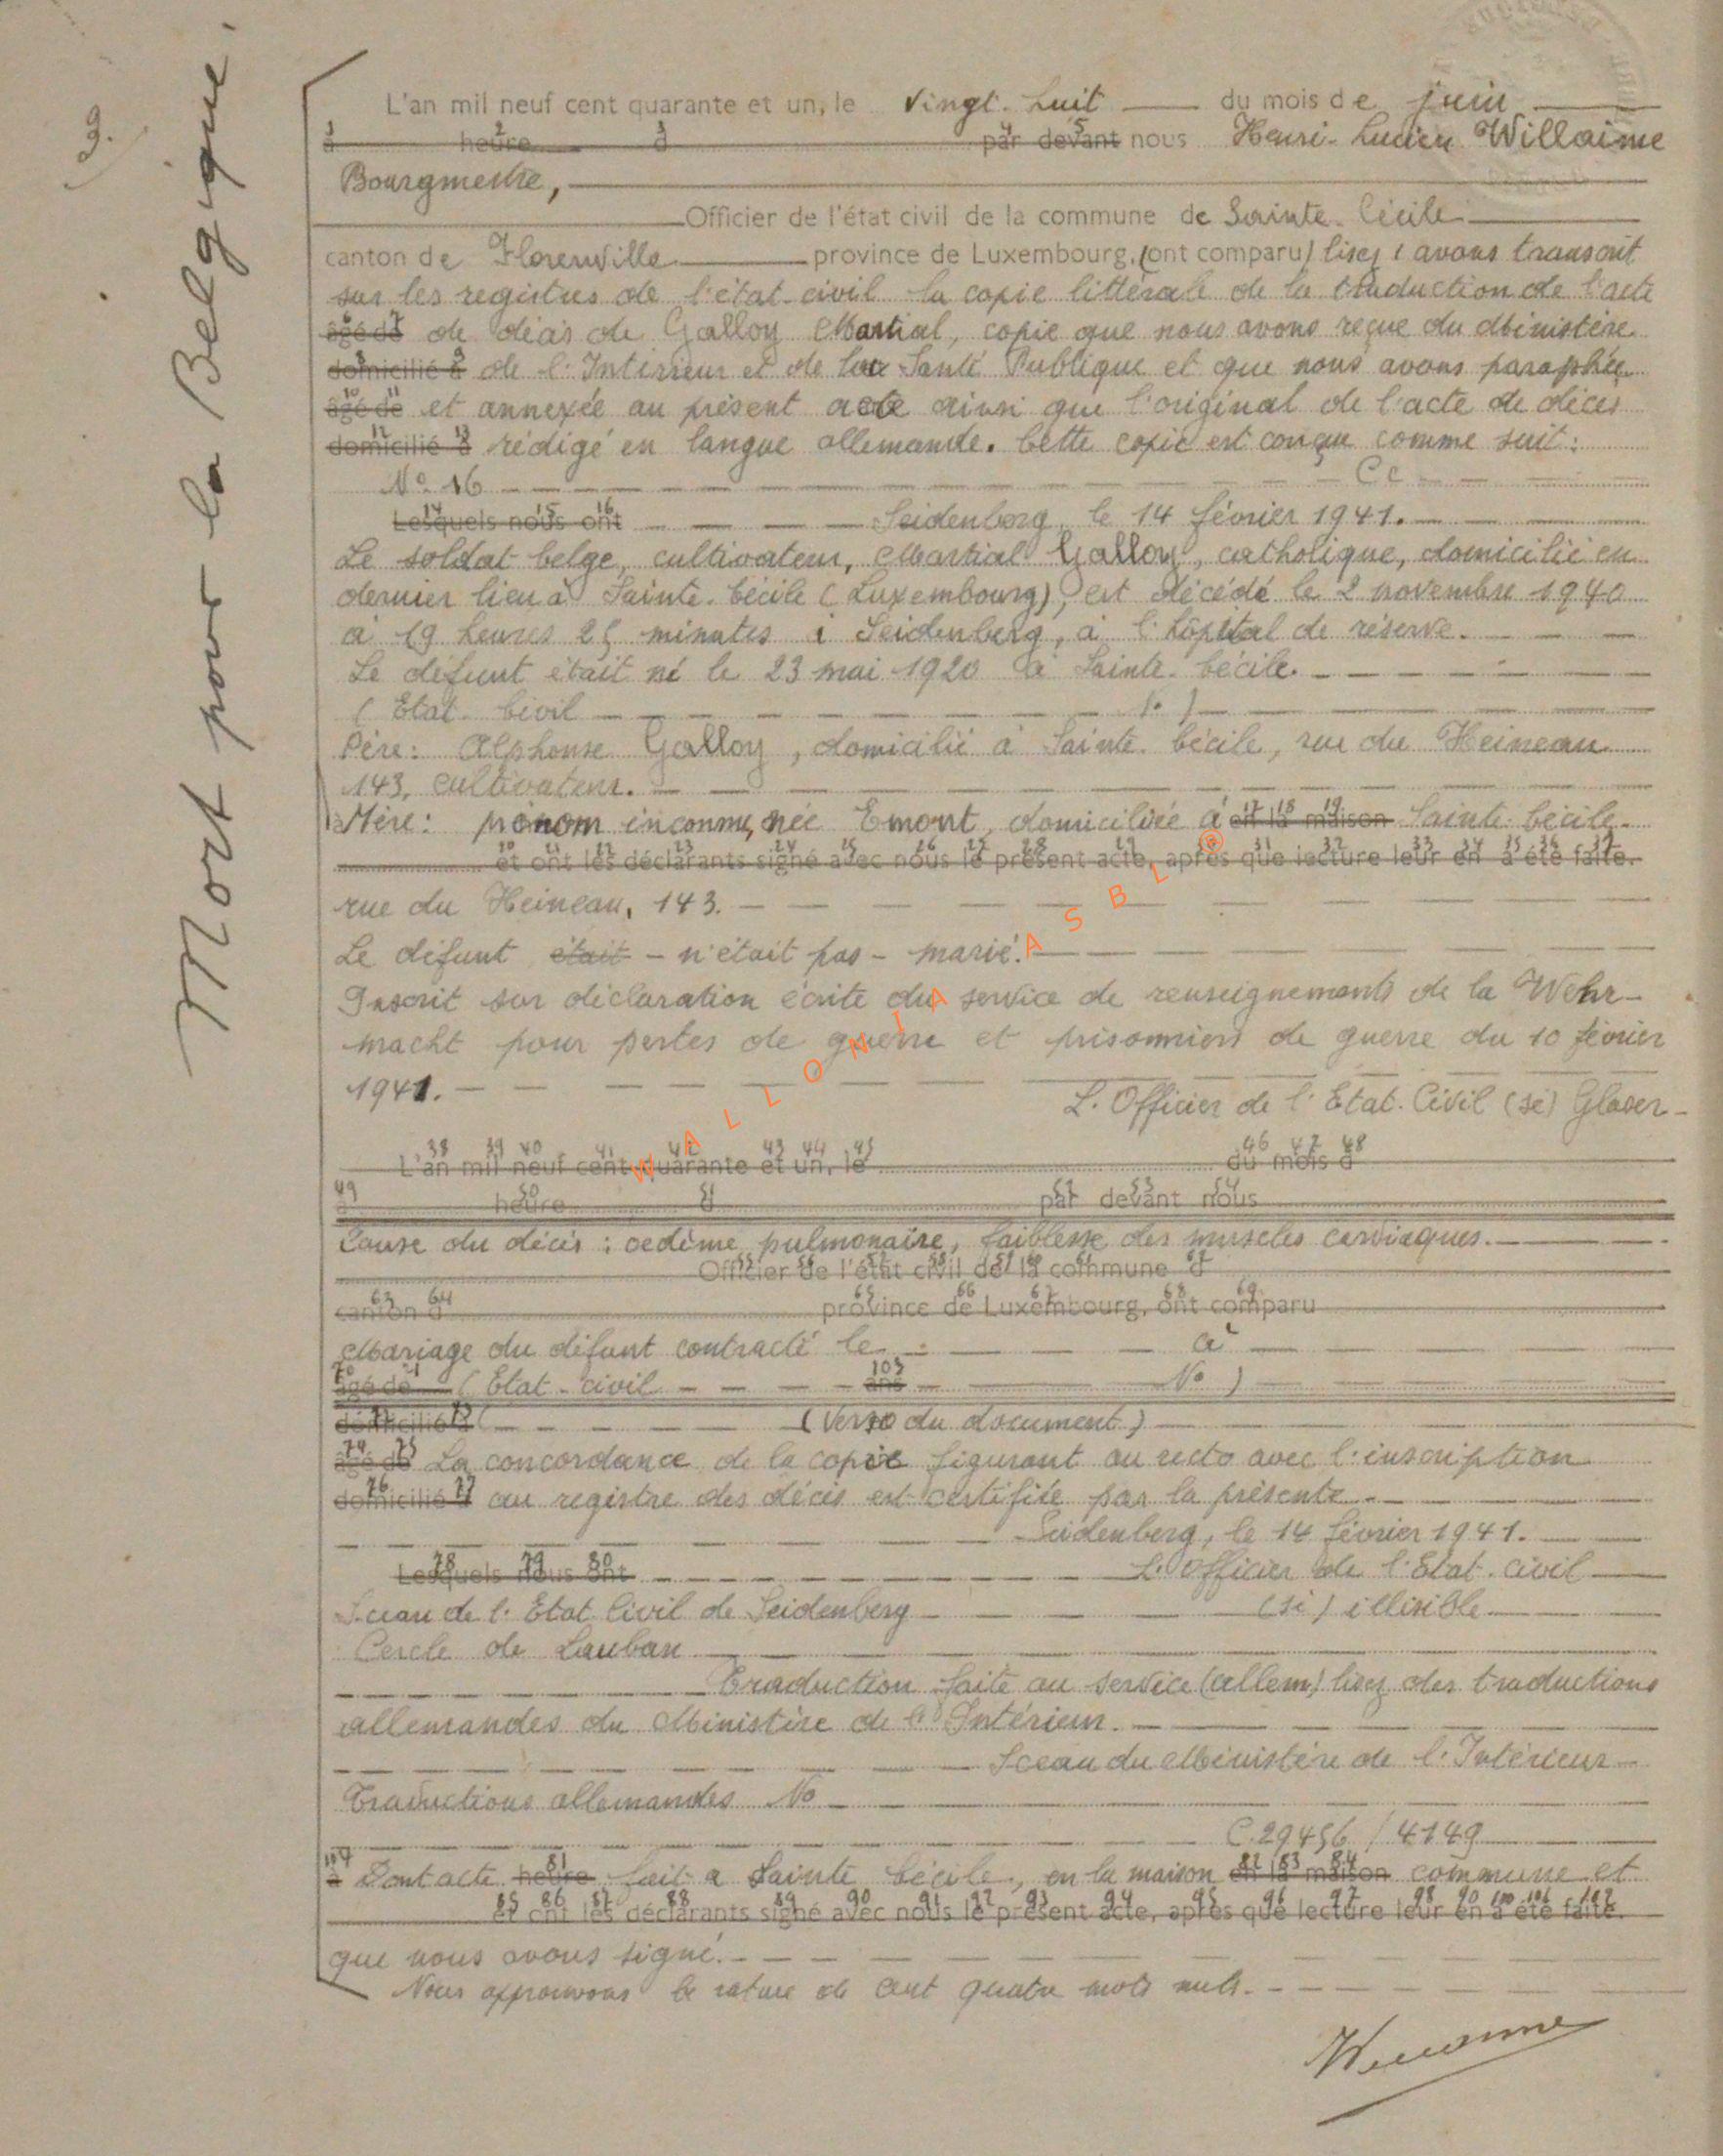 3.
Mort pour la Belgique.
L'an mil neuf cent quarante et un, le vingt-huit du mois de juin
1 2 3 4 5
à heure à par devant nous Henri-Lucien Willaime
Bourgmestre,
Officier de l'état civil de la commune de Sainte-Cécile
canton de Florenville province de Luxembourg, (ont comparu) lisez : avons transcrit
sur les registres de l'état-civil la copie littérale de la traduction de l'acte
6 7
âgé de de décès de Galloy Martial, copie que nous avons reçue du Ministère
8 9
domicilié à de l'Intérieur et de la Santé Publique et que nous avons paraphée
10 11
âgé de et annexée au présent acte ainsi que l'original de l'acte de décès
12 13
domicilié à rédigé en langue allemande. Cette copie est conçue comme suit:
N° 16 Cc
14 15 16
Lesquels nous ont Seidenberg, le 14 février 1941.
Le soldat belge, cultivateur, Martial Galloy, catholique, domicilié en
dernier lieu à Sainte-Cécile (Luxembourg), est décédé le 2 novembre 1940
à 19 heures 25 minutes à Seidenberg, à l'hôpital de réserve.
Le défunt était né le 23 mai 1920 à Sainte-Cécile.
(Etat-Civil )
Père: Alphonse Galloy, domicilié à Sainte-Cécile, rue du Heineau
143, cultivateur.
17 18 19
à Mère: prénom inconnu, née Emont, domiciliée à en la maison Sainte-Cécile
20 21 22 23 24 25 26 27 28 29 30 31 32 33 34 35 36 37
et ont les déclarants signé avec nous le présent acte, après que lecture leur en a été faite.
rue du Heineau, 143.
Le défunt était - n'était pas - marié.
Inscrit sur déclaration écrite du service de renseignements de la Wehr-
macht pour pertes de guerre et prisonniers de guerre du 10 février
1941.
L'Officier de l'Etat-Civil (sé) Glaser
38 39 40 41 42 43 44 45 46 47 48
L'an mil neuf cent quarante et un, le du mois d
49 50 51 52 53 54
à heure à par devant nous
Cause du décès : oedème pulmonaire, faiblesse des muscles cardiaques.
55 56 57 58 59 60 61 62
Officier de l'état civil de la commune d
63 64 65 66 67 68 69
canton d province de Luxembourg, ont comparu
Mariage du défunt contracté le à
70 71 103
âgé de (Etat-civil ans N° )
72 73
domicilié à (Verso du document)
74 75
âgé de La concordance de la copie figurant au recto avec l'inscription
76 77
domicilié à au registre des décès est certifiée par la présente
Seidenberg, le 14 février 1941.
78 79 80
Lesquels nous ont L'Officier de l'Etat-civil
Sceau de l'Etat Civil de Seidenberg (sé) illisible
Cercle de Lauban
Traduction faite au service (allem) lisez des traductions
allemandes du Ministère de l'Intérieur.
Sceau du Ministère de l'Intérieur
Traductions allemandes N°
C.29456 / 4149
104 81 82 83 84
à Dont acte heure fait à Sainte Cécile, en la maison en la maison commune et
85 86 87 88 89 90 91 92 93 94 95 96 97 98 99 100 101 102
et ont les déclarants signé avec nous le présent acte, après que lecture leur en a été faite.
que nous avons signé.
Nous approuvons la rature de cent quatre mots nuls.
Willaime
WALLONIA ASBL ®